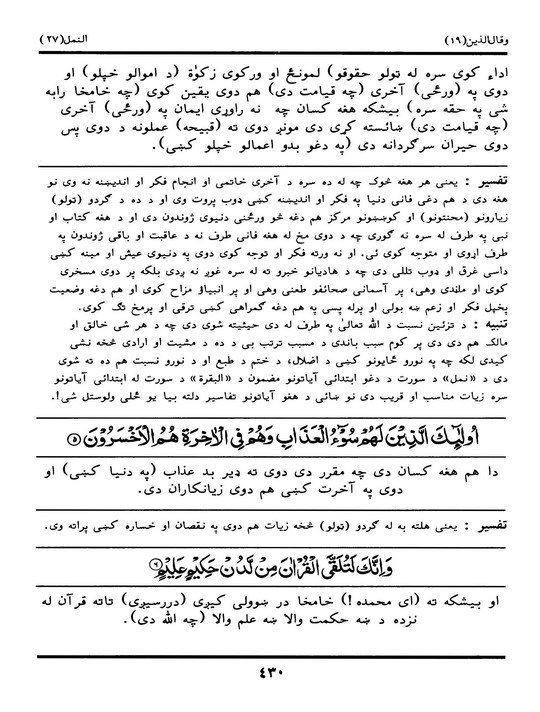 وقال‌الذين(١٩)
النمل(٢٧)
اداء کوی سره له تولو حقوقو) لمونځ او ورکوی زکوٰة (د اموالو خپلو) او
دوی په (ورځی) آخری (چه قیامت دی) هم دوی یقین کوی (چه خامخا رابه
شی په حقه سره) بیشکه هغه کسان چه نه راوړی ایمان په (ورځی) آخری
(چه قیامت دی) ښائسته کړی دی مونږ دوی ته (قبیحه) عملونه د دوی پس
دوی حیران سرګردانه دی (په دغو بدو اعمالو خپلو کښی).
تفسیر : یعنی هر هغه څوک چه له ده سره د آخری خاتمی او انجام فکر او اندیښنه نه وی نو
هغه دی د هم دغی فانی دنیا په فکر او اندیښنه کښی ډوب پروت وی او د ده د ګردو (تولو)
زیارونو (محنتونو) او کوښښونو مرکز هم دغه څو ورځنی دنیوی ژوندون دی او د هغه کتاب او
نبی په طرف له سره نه ګوری چه د دوی مخ له هغه فانی طرف نه د عاقبت او باقی ژوندون په
طرف اړوی او متوجه کوی ئی. او نه ورته فکر او توجه کوی دوی په دنیوی عیش او مینه کښی
داسی غرق او ډوب تللی دی چه د هادیانو خبرو ته له سره غوږ نه ږدی بلکه پر دوی مسخری
کوی او ملنډی وهی، پر آسمانی صحائفو طعنی وهی او پر انبیاؤ مزاح کوی او هم دغه وضعیت
پخپل فکر او زعم ښه بولی او پرله پسی په هم دغه ګمراهی کښی ترقی او پرمخ تګ کوی.
تنبیه : د تزئین نسبت د الله تعالیٰ په طرف له دی حیثیته شوی دی چه د هر شی خالق او
مالک هم دی دی پر کوم سبب باندی د مسبب ترتب بی د ده د مشیت او ارادی څخه نشی
کیدی لکه چه په نورو ځایونو کښی د اضلال، د ختم د طبع او د نورو نسبت هم ده ته شوی
دی د «نمل» د سورت د دغو ابتدائی آیاتونو مضمون د «البقرة» د سورت له ابتدائی آیاتونو
سره زیات مناسب او قریب دی نو ښائی د هغو آیاتونو تفاسیر دلته بیا یو ځلی ولوستل شی!.
أُولَٰئِكَ الَّذِينَ لَهُمْ سُوءُ الْعَذَابِ وَهُمْ فِي الْآخِرَةِ هُمُ الْأَخْسَرُونَ ۝٥
دا هم هغه کسان دی چه مقرر دی دوی ته ډیر بد عذاب (په دنیا کښی) او
دوی په آخرت کښی هم دوی زیانکاران دی.
تفسیر : یعنی هلته به له ګردو (تولو) څخه زیات هم دوی په نقصان او خساره کښی پراته وی.
وَإِنَّكَ لَتُلَقَّى الْقُرْآنَ مِنْ لَدُنْ حَكِيمٍ عَلِيمٍ ۝٦
او بیشکه ته (ای محمده !) خامخا در ښوولی کیږی (دررسیږی) تاته قرآن له
نزده د ښه حکمت والا ښه علم والا (چه الله دی).
٤٣٠